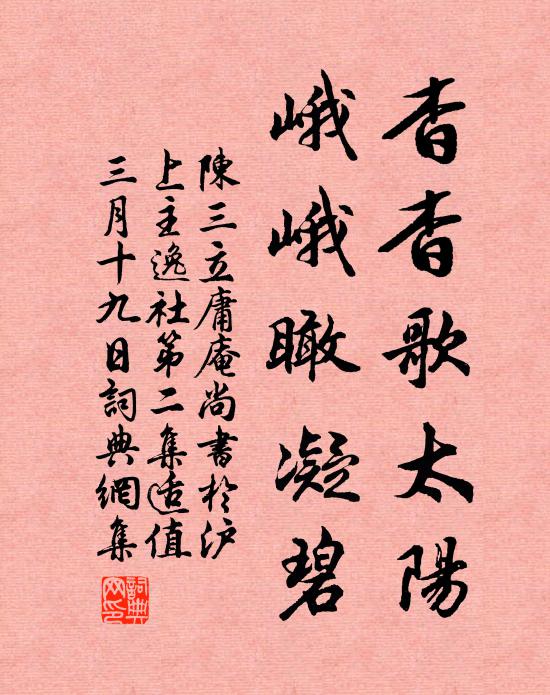 杳杳歌太陽
峨峨瞰凝碧
陳三立庸庵尚書於沪
上主逸社第二集适值
三月十九日詞典網集
詞典
网印